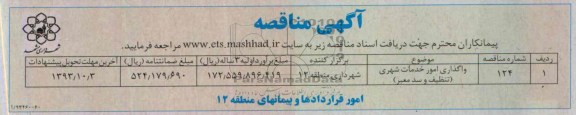 آگهی مناقصه
پیمانکاران محترم جهت دریافت اسناد مناقصه زیر به سایت www.ets.mashhad.ir مراجعه فرمایید.
ردیف شماره مناقصه موضوع برگزار کننده مبلغ برآورد اولیه ۳ ساله (ریال) مبلغ ضمانتنامه (ریال) آخرین مهلت تحویل پیشنهادات
۱ ۱۲۴ واگذاری امور خدمات شهری (تنظیف و سد معبر) شهرداری منطقه ۱۲ ۱۷۲,۵۵۹,۸۹۶,۴۱۹ ۵۲۴,۱۷۹,۶۹۰ ۱۳۹۳,۱۰,۳
امور قراردادها و پیمانهای منطقه ۱۲